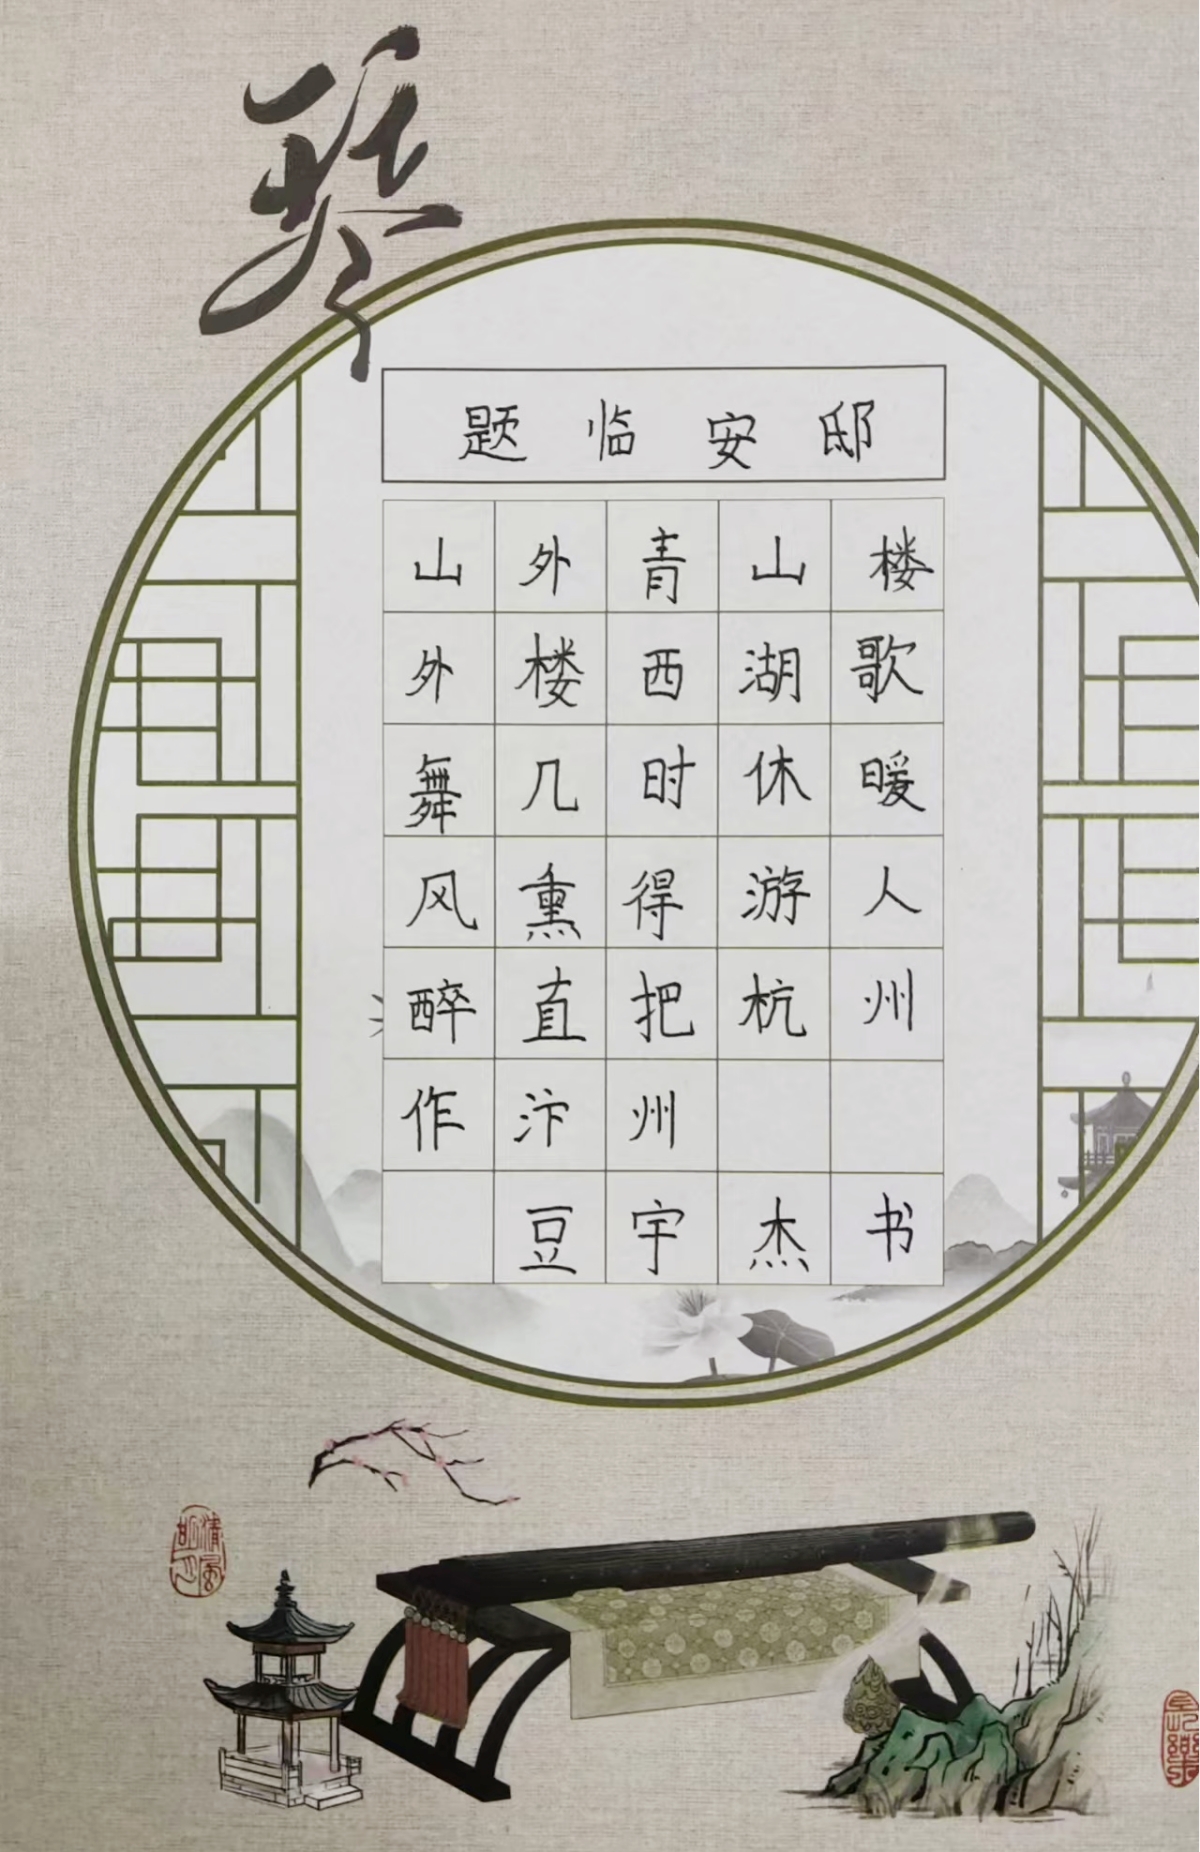 琴
题临安邸
山外青山楼
外楼西湖歌
舞几时休暖
风熏得游人
醉直把杭州
作汴州
豆宇杰书
清风
明月
长乐